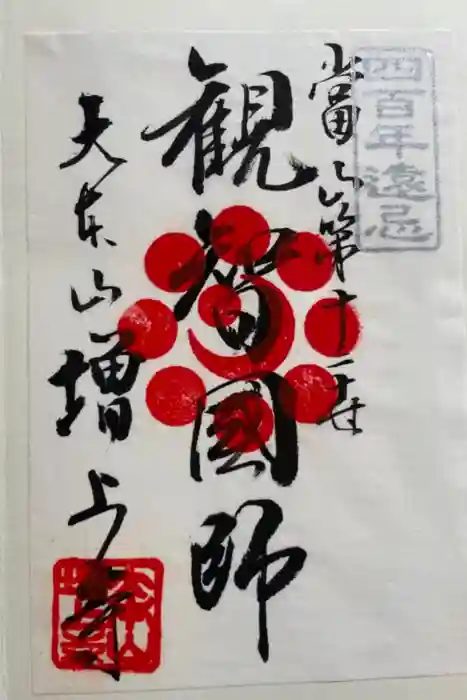 四百年遠忌
當山第十二世
観智國師
大本山増上寺